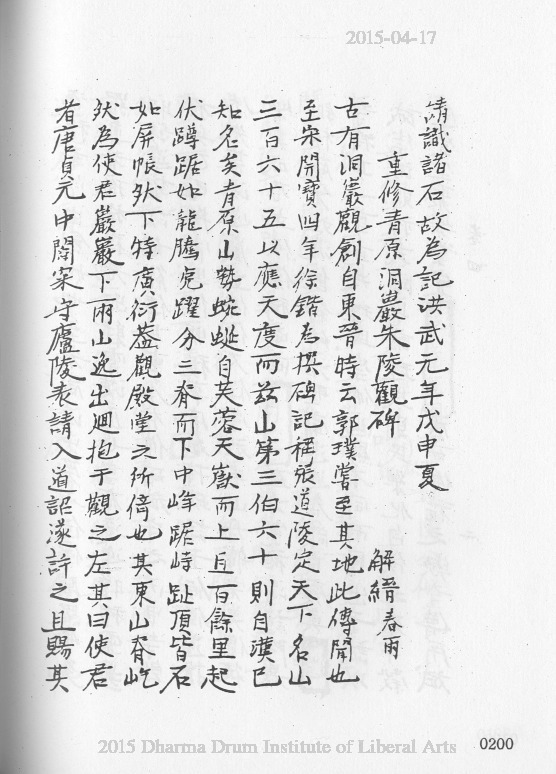 2015-04-17
請識諸石故為記洪武元年戊申夏
重修青原洞巖朱陵觀碑
解縉春雨
古有洞巖觀創自東晉時云郭璞嘗至其地此傳聞也
至宋開寶四年徐鍇為撰碑記稱張道陵定天下名山
三百六十五以應天度而茲山第三伯六十則自漢已
知名矣青原山勢蜿蜒自芙蓉天嶽而上且百餘里起
伏蹲踞如龍騰虎躍分三脊而下中峰踞峙趾頂皆石
如屏帳然下特廣衍葢觀殿堂之所倚也其東山脊屹
然為使君巖巖下兩山逸出迴抱于觀之左其曰使君
者唐貞元中閻寀守廬陵表請入道詔遂許之且賜其
0200
2015 Dharma Drum Institute of Liberal Arts